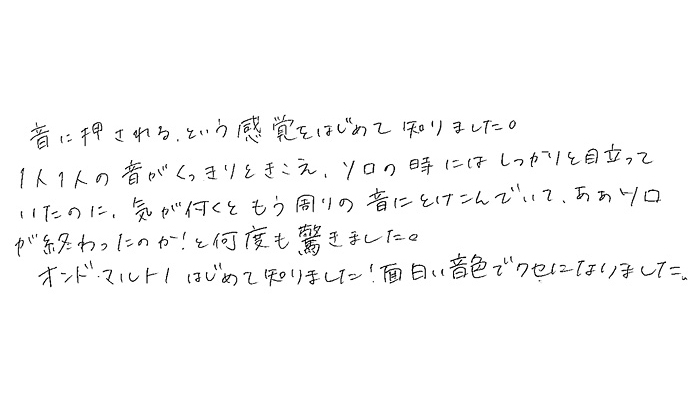 音に押される、という感覚をはじめて知りました。
1人1人の音がくっきりときこえ、ソロの時にはしっかりと目立って
いたのに、気が付くともう周りの音にとけこんでいて、ああソロ
が終わったのか！と何度も驚きました。
オンド・マルトノ はじめて知りました！面白い音色でクセになりました。